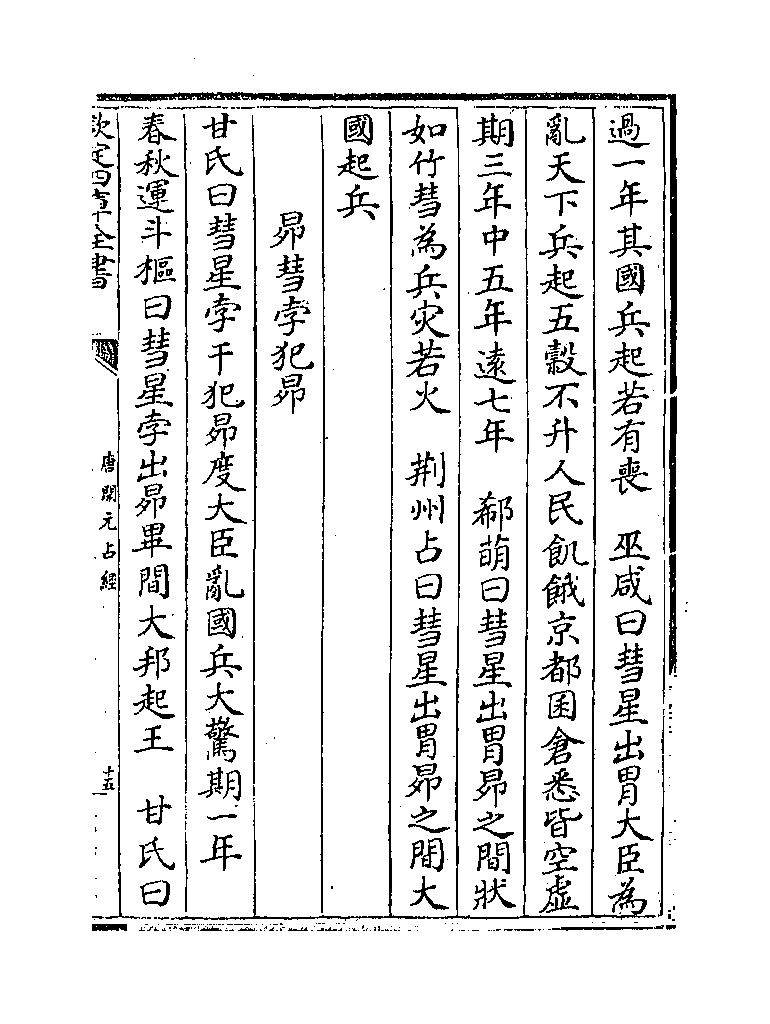 過一年其國兵起若有喪　巫咸曰彗星出胃大臣為
亂天下兵起五穀不升人民飢餓京都囷倉悉皆空虛
期三年中五年遠七年　郗萌曰彗星出胃昴之間狀
如竹彗為兵灾若火　荆州占曰彗星出胃昴之間大
國起兵
昴彗孛犯昴
甘氏曰彗星孛干犯昴度大臣亂國兵大驚期一年
春秋運斗樞曰彗星孛出昴畢間大邦起王　甘氏曰
欽定四庫全書
唐開元占經
十五